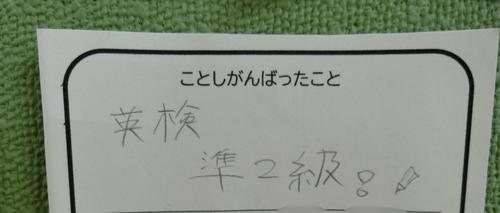 ことしがんばったこと
英検
準2級!